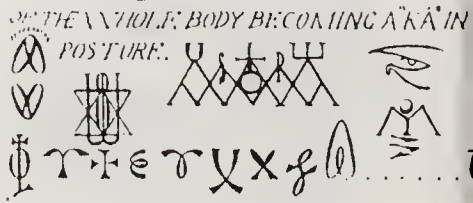 OF THE WHOLE BODY BECOMING A "KA" IN
POSTURE.